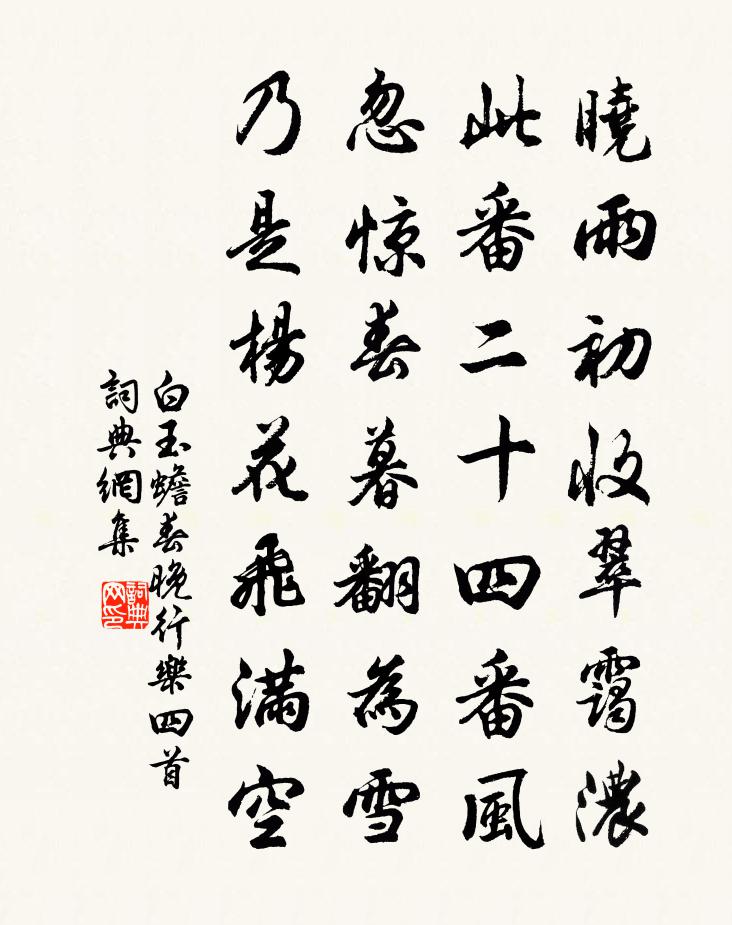 曉雨初收翠靄濃
此番二十四番風
忽惊春暮翻為雪
乃是楊花飛滿空
白玉蟾春晚行樂四首
詞典網集
詞典网印